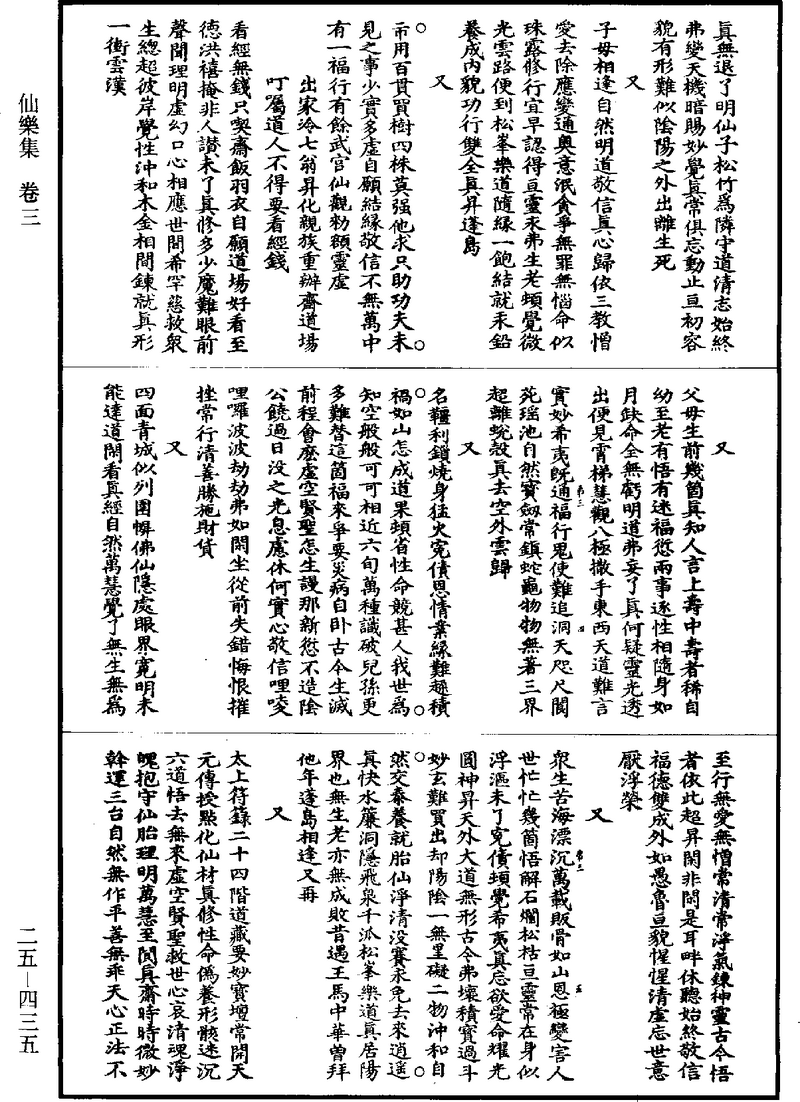 仙樂集　卷三
二五—四三五
眞無退了明仙子松竹爲隣守道清志始終
弗變天機暗賜妙覺眞常俱忘動止亘初容
貌有形難似陰陽之外出離生死
又
子母相逢自然明道敬信眞心歸依三教憎
愛去除應變通奥意泯貪爭無罪無惱命似
珠露修行宜早認得亘靈永弗生老頓覺微
光雲路便到松峯樂道隨緣一飽結就汞鉛
養成内貌功行雙全眞昇蓬島
又
帀用百貫買樹四株莫强他求只助功夫未
見之事少實多虚自願結緣敬信不無萬中
有一福行有餘武官仙觀粉額靈虚
出家泠七翁昇化親族重辦齋道場
叮囑道人不得要看經錢
看經無錢只喫齋飯羽衣自願道場好看至
德洪禧掩非人讃未了眞修多少魔難眼前
聲聞理明虚幻口心相應世間希罕慈救衆
生總超彼岸覺性沖和木金相間鍊就眞形
一衝雲漢
又
父母生前幾箇眞知人言上壽中壽者稀自
幼至老有悟有迷福愆兩事逐性相隨身如
月缺命全無虧明道弗妄了眞何疑靈光透
出便見霄梯慧觀八極撒手東西天道難言
實妙希夷旣通福行鬼使難追洞天咫尺閬
苑瑶池自然寶劔常鎮蛇龜物物無著三界
超離蛻殻眞去空外雲歸
又
名韁利鎖燒身猛火寃債恩情業緣難趓積
禍如山怎成道果頓省性命競甚人我世爲
知空般般可可相近六旬萬種識破兒孫更
多難替這箇福來爭要災病自卧古今生滅
前程會麽虚空賢聖怎生謾那新愆不造陰
公饒過日没之光息慮休何實心敬信哩唛
哩囉波波劫劫弗如閑坐從前失錯悔恨摧
挫常行清善勝施財貨
又
四面青城似列圍幈佛仙隱處眼界寬明未
能達道閑看眞經自然萬慧覺了無生無爲
至行無愛無憎常清常淨氣鍊神靈古今悟
者依此超昇閑非閙是耳畔休聽始終敬信
福德雙成外如愚魯亘貌惺惺清虚忘世意
厭浮榮
又
衆生苦海漂沉萬載販骨如山恩極變害人
世忙忙幾箇悟解石爛松枯亘靈常在身似
浮漚未了寃債頓覺希夷眞忘欲愛命耀光
圓神昇天外大道無形古今弗壞積寶過斗
妙玄難買出却陽陰一無罣礙二物沖和自
然交泰養就胎仙淨清没賽永免去來逍遥
眞快水簾洞隱飛泉千派松峯樂道眞居陽
界也無生老亦無成敗昔遇王馬中華曾拜
他年蓬島相逢又再
又
太上符籙二十四階道藏要妙寶壇常開天
元傳授點化仙材眞修性命僞養形骸迷沉
六道悟去無來虚空賢聖救世心哀清魂淨
魄抱守仙胎理明萬慧至閒眞齋時時微妙
斡運三台自然無作平善無乖天心正法不